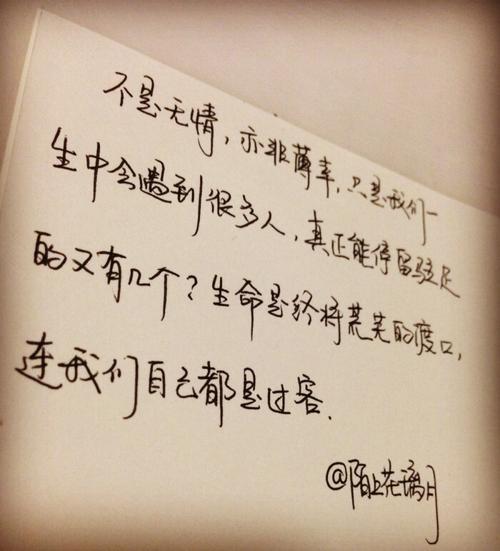 不是无情，亦非薄幸，只是我们一
生中会遇到很多人，真正能停留驻足
的又有几个？生命是终将荒芜的渡口，
连我们自己都是过客．
@陌上花璃月